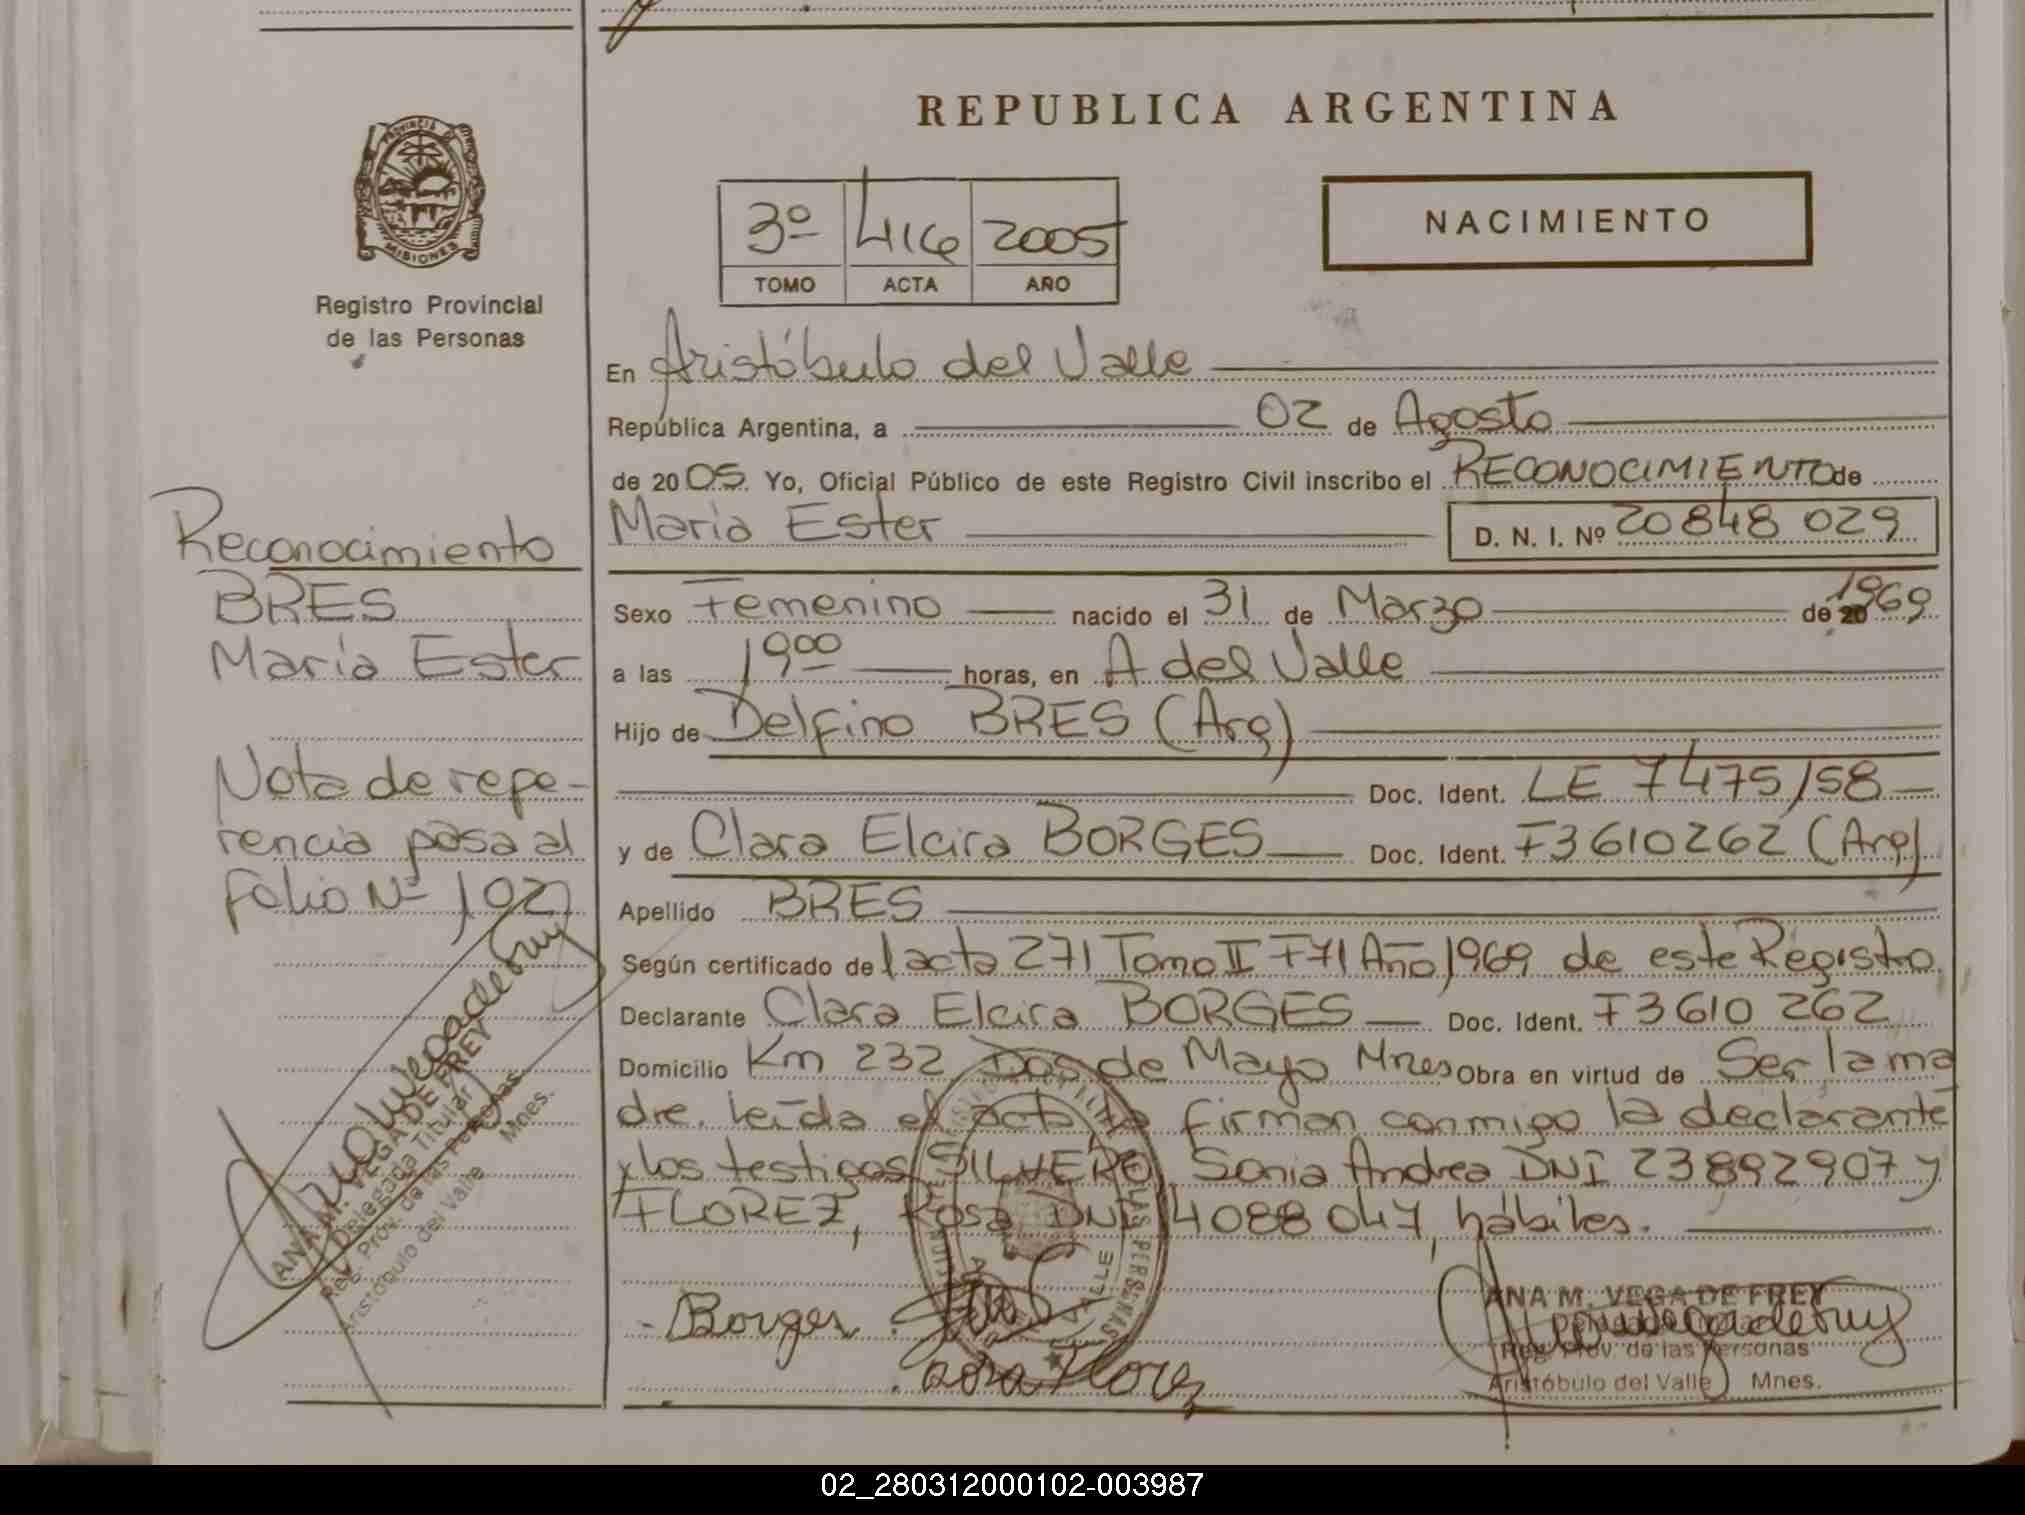 REPUBLICA ARGENTINA
PROVINCIA DE
MISIONES
Registro Provincial
de las Personas
3º 416 2005
TOMO ACTA AÑO
NACIMIENTO
En Aristóbulo del Valle
República Argentina, a 02 de Agosto
de 2005 Yo, Oficial Público de este Registro Civil inscribo el RECONOCIMIENTO de
María Ester D. N. I. Nº 20848029
Sexo Femenino nacido el 31 de Marzo de 20 1969
a las 19oo horas, en A del Valle
Hijo de Delfino BRES (Arg)
Doc. Ident. LE 7475158
y de Clara Elcira BORGES Doc. Ident. F3610262 (Arg)
Apellido BRES
Según certificado de l acta 271 Tomo II F71 Año 1969 de este Registro
Declarante Clara Elcira BORGES Doc. Ident. F3610262
Domicilio Km 232 Dos de Mayo Mnes Obra en virtud de Ser la ma
dre. leída el acta la firman conmigo la declarante
y los testigos SILVERO, Sonia Andrea DNI 23892907 y
FLOREZ, Rosa DNI 14088047, hábiles.
Reconocimiento
BRES
María Ester
Nota de refe-
rencia pasa al
folio Nº 102
ANA M. VEGA DE FREY
Delegada Titular
Reg. Prov. de las Personas
Aristóbulo del Valle Mnes.
Borges
Rosa Florez
ANA M. VEGA DE FREY
Delegada Titular
Reg. Prov. de las Personas
Aristóbulo del Valle Mnes.
02_280312000102-003987